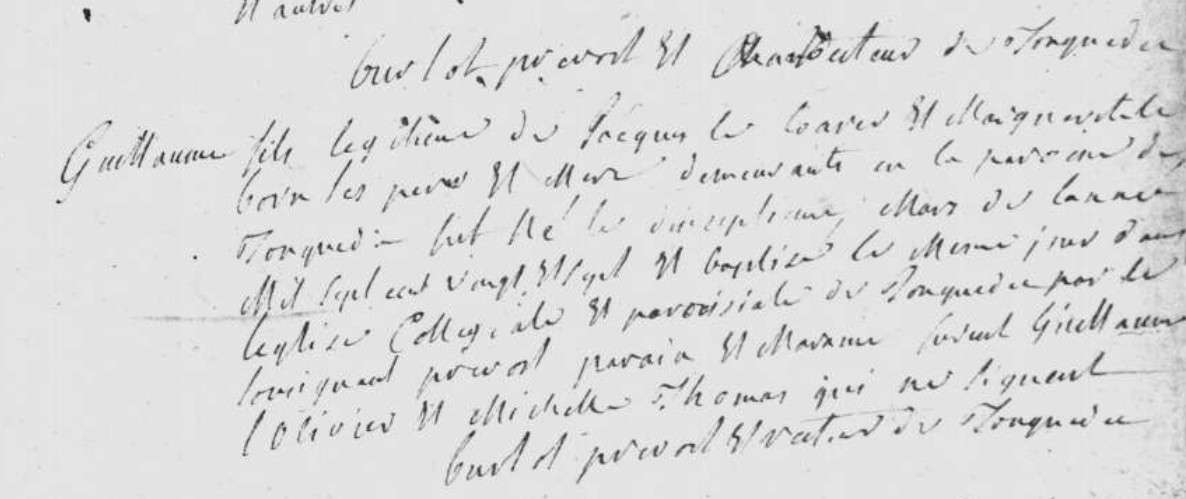 et autres
burlot prevost et recteur de Tonquedec
Guillaume fils legitime de Jacques le Coarer et Marguerite le
born ses pere et Mere demeurants en la paroisse de
Tonquedec fut Né le Mars de lannee
Mil sept cent vingt et sept et baptisé le Mesme jour dans
leglise Collegiale et paroissiale de Tonquedec par le
sousignant prevost parain et Maraine furent Guillaume
lolivier et Michelle Thomas qui ne signent
burlot prevost et recteur de Tonquedec